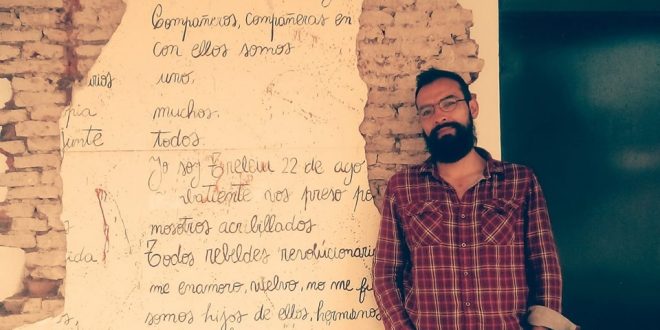 Compañeros, compañeras en
con ellos somos
arios uno,
pia muchos.
unte todos.
Yo soy Trelew 22 de ago
valiente vos preso po
nosotros acribillados
ida Todos rebeldes revolucionari
me enamoro, vuelvo, no me fu
s, somos hijos de ellos, hermanos